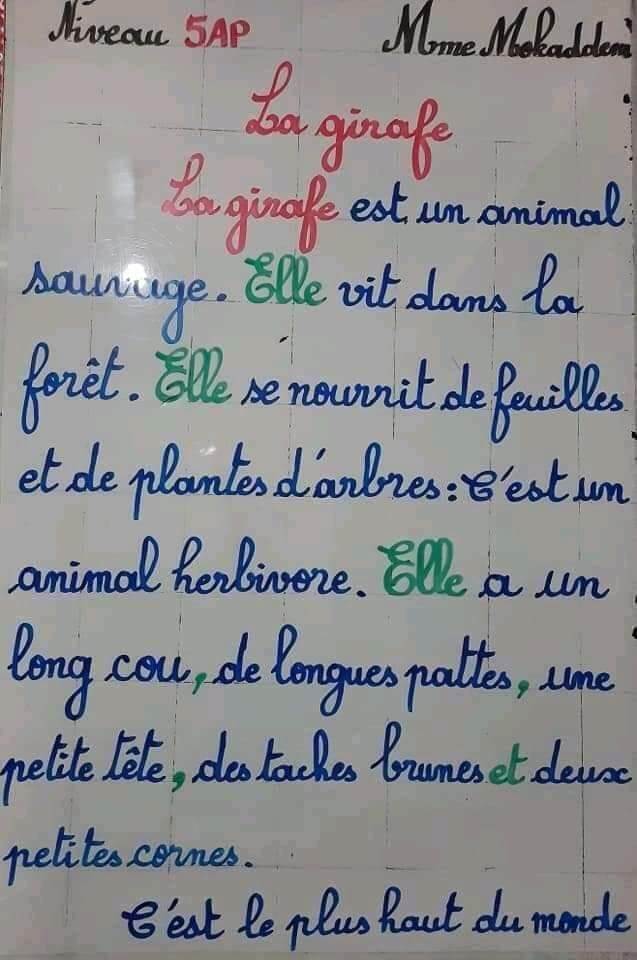 Niveau 5AP Mme Mokaddem
La girafe
La girafe est un animal
sauvage. Elle vit dans la
forêt. Elle se nourrit de feuilles
et de plantes d'arbres : C'est un
animal herbivore. Elle a un
long cou, de longues pattes, une
petite tête, des taches brunes et deux
petites cornes.
C'est le plus haut du monde